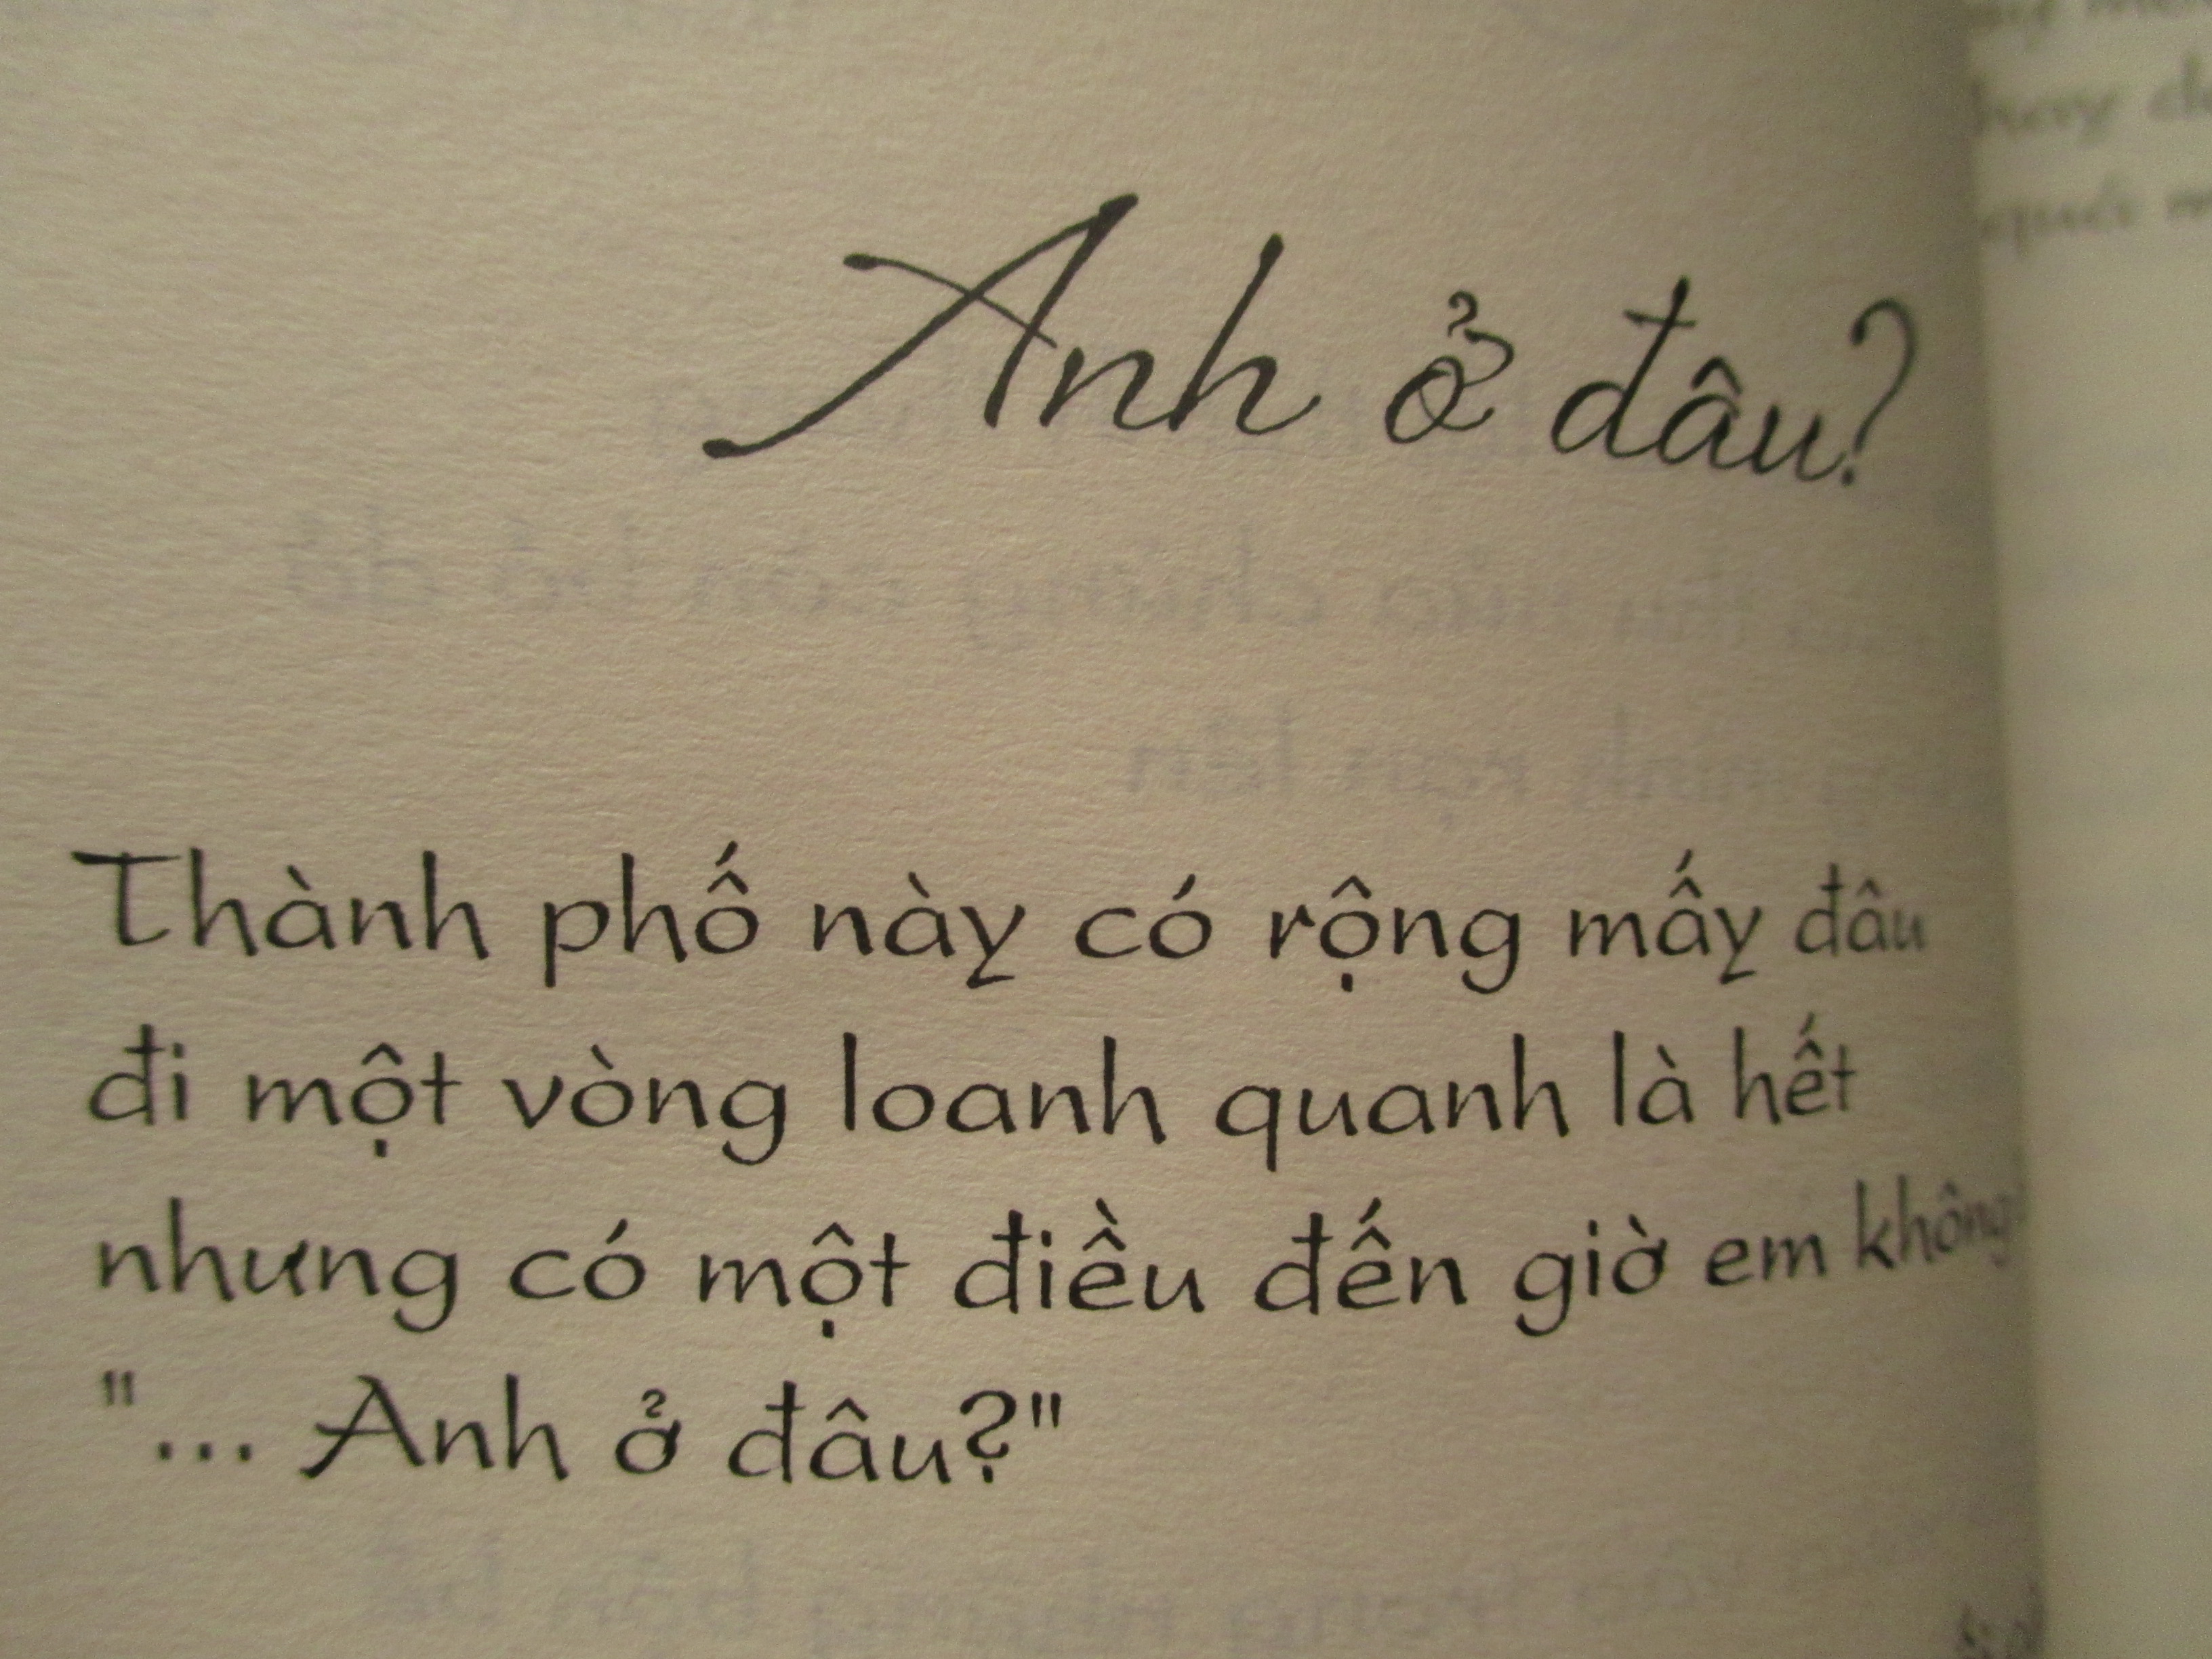 Anh ở đâu?
Thành phố này có rộng mấy đâu
đi một vòng loanh quanh là hết
nhưng có một điều đến giờ em không
"... Anh ở đâu?"